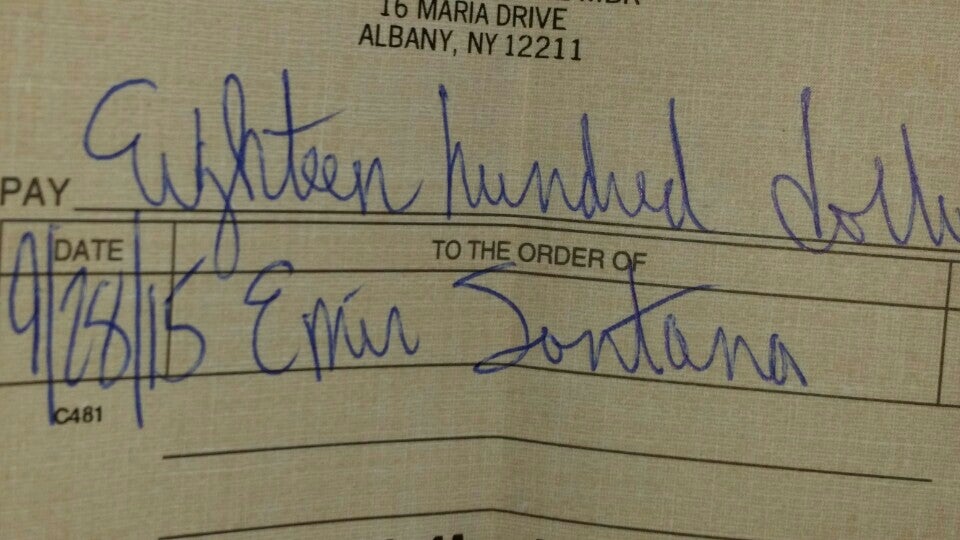 16 MARIA DRIVE
ALBANY, NY 12211
PAY Eighteen hundred
DATE TO THE ORDER OF
9/28/15 Emir Santana
C481